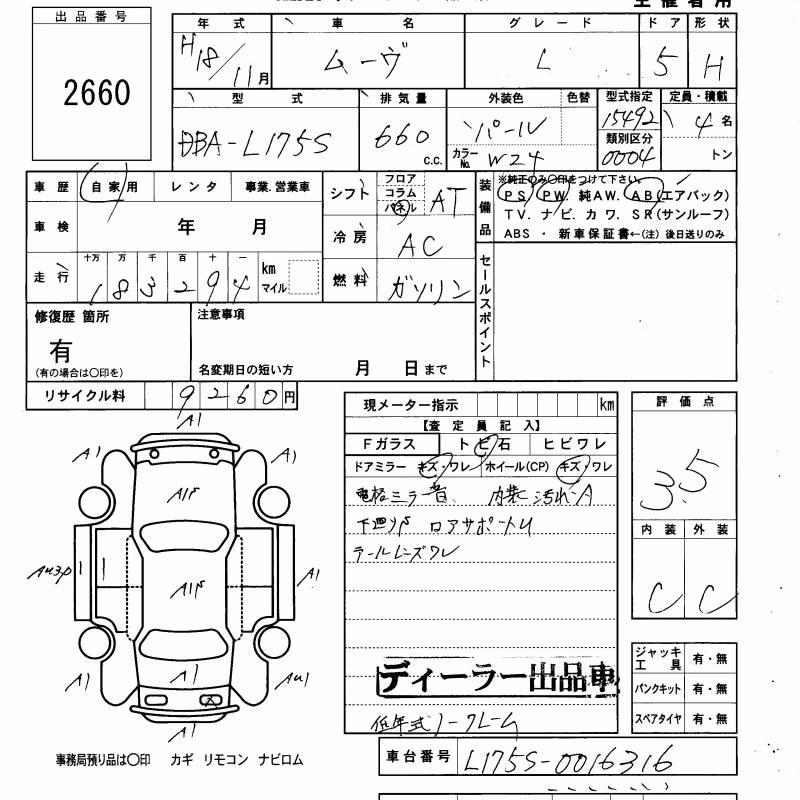 出品番号
2660
年式 車名 グレード ドア 形状
H18/11月 ムーヴ L 5 H
型式 排気量 外装色 色替 型式指定 定員・積載
DBA-L175S 660 c.c. パール 15492 4名
カラーNo. W24 類別区分 0004 トン
車歴 自家用 レンタ 事業.営業車
シフト フロア コラム パネル AT
装備品 ※純正のみ〇印をつけて下さい。
PS. PW. 純AW. AB(エアバック)
TV. ナビ. カワ. SR(サンルーフ)
ABS ・ 新車保証書←(注) 後日送りのみ
車検 年 月
冷房 AC
走行 十万 万 千 百 十 一
183294 km マイル
燃料 ガソリン
セールスポイント
修復歴 箇所
有
(有の場合は〇印を)
注意事項
名変期日の短い方 月 日まで
リサイクル料 9260円
現メーター指示 km
【査定員記入】
Fガラス トビ石 ヒビワレ
ドアミラー キズ・ワレ ホイール(CP) キズ・ワレ
内装汚れA
下廻りP ロアサポートU
テールレンズワレ
ディーラー出品車
低年式ノークレーム
評価点
3.5
内装 外装
C C
ジャッキ工具 有・無
パンクキット 有・無
スペアタイヤ 有・無
A1
A1 A1
A1P
A1
A1P
A1
A1
A1
事務局預り品は〇印 カギ リモコン ナビロム
車台番号 L175S-0016316